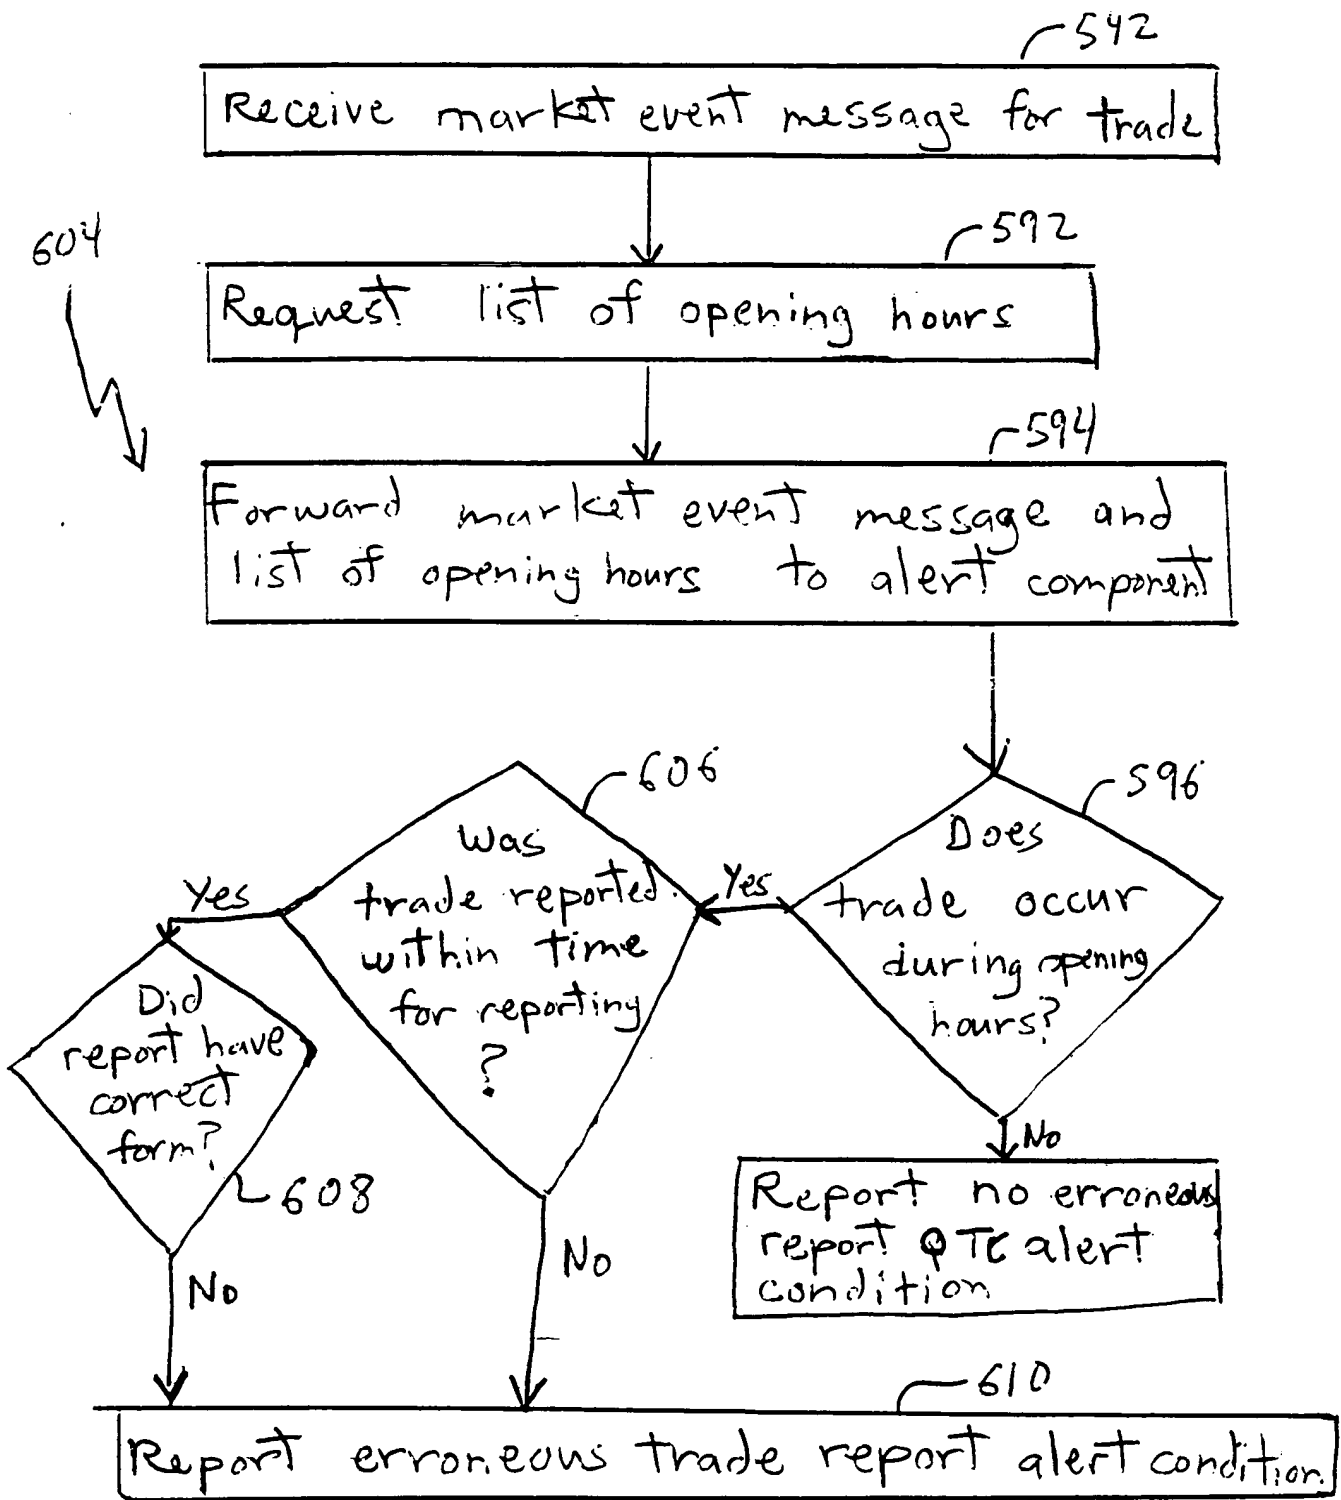 542
Receive market event message for trade
592
604
Request list of opening hours
594
Forward market event message and
list of opening hours to alert component
606
596
Was
trade reported
within time
for reporting
?
Yes
Does
trade occur
during opening
hours?
Yes
Did
report have
correct
form?
608
No
No
No
Report no erroneous
report alert
condition
610
Report erroneous trade report alert condition.